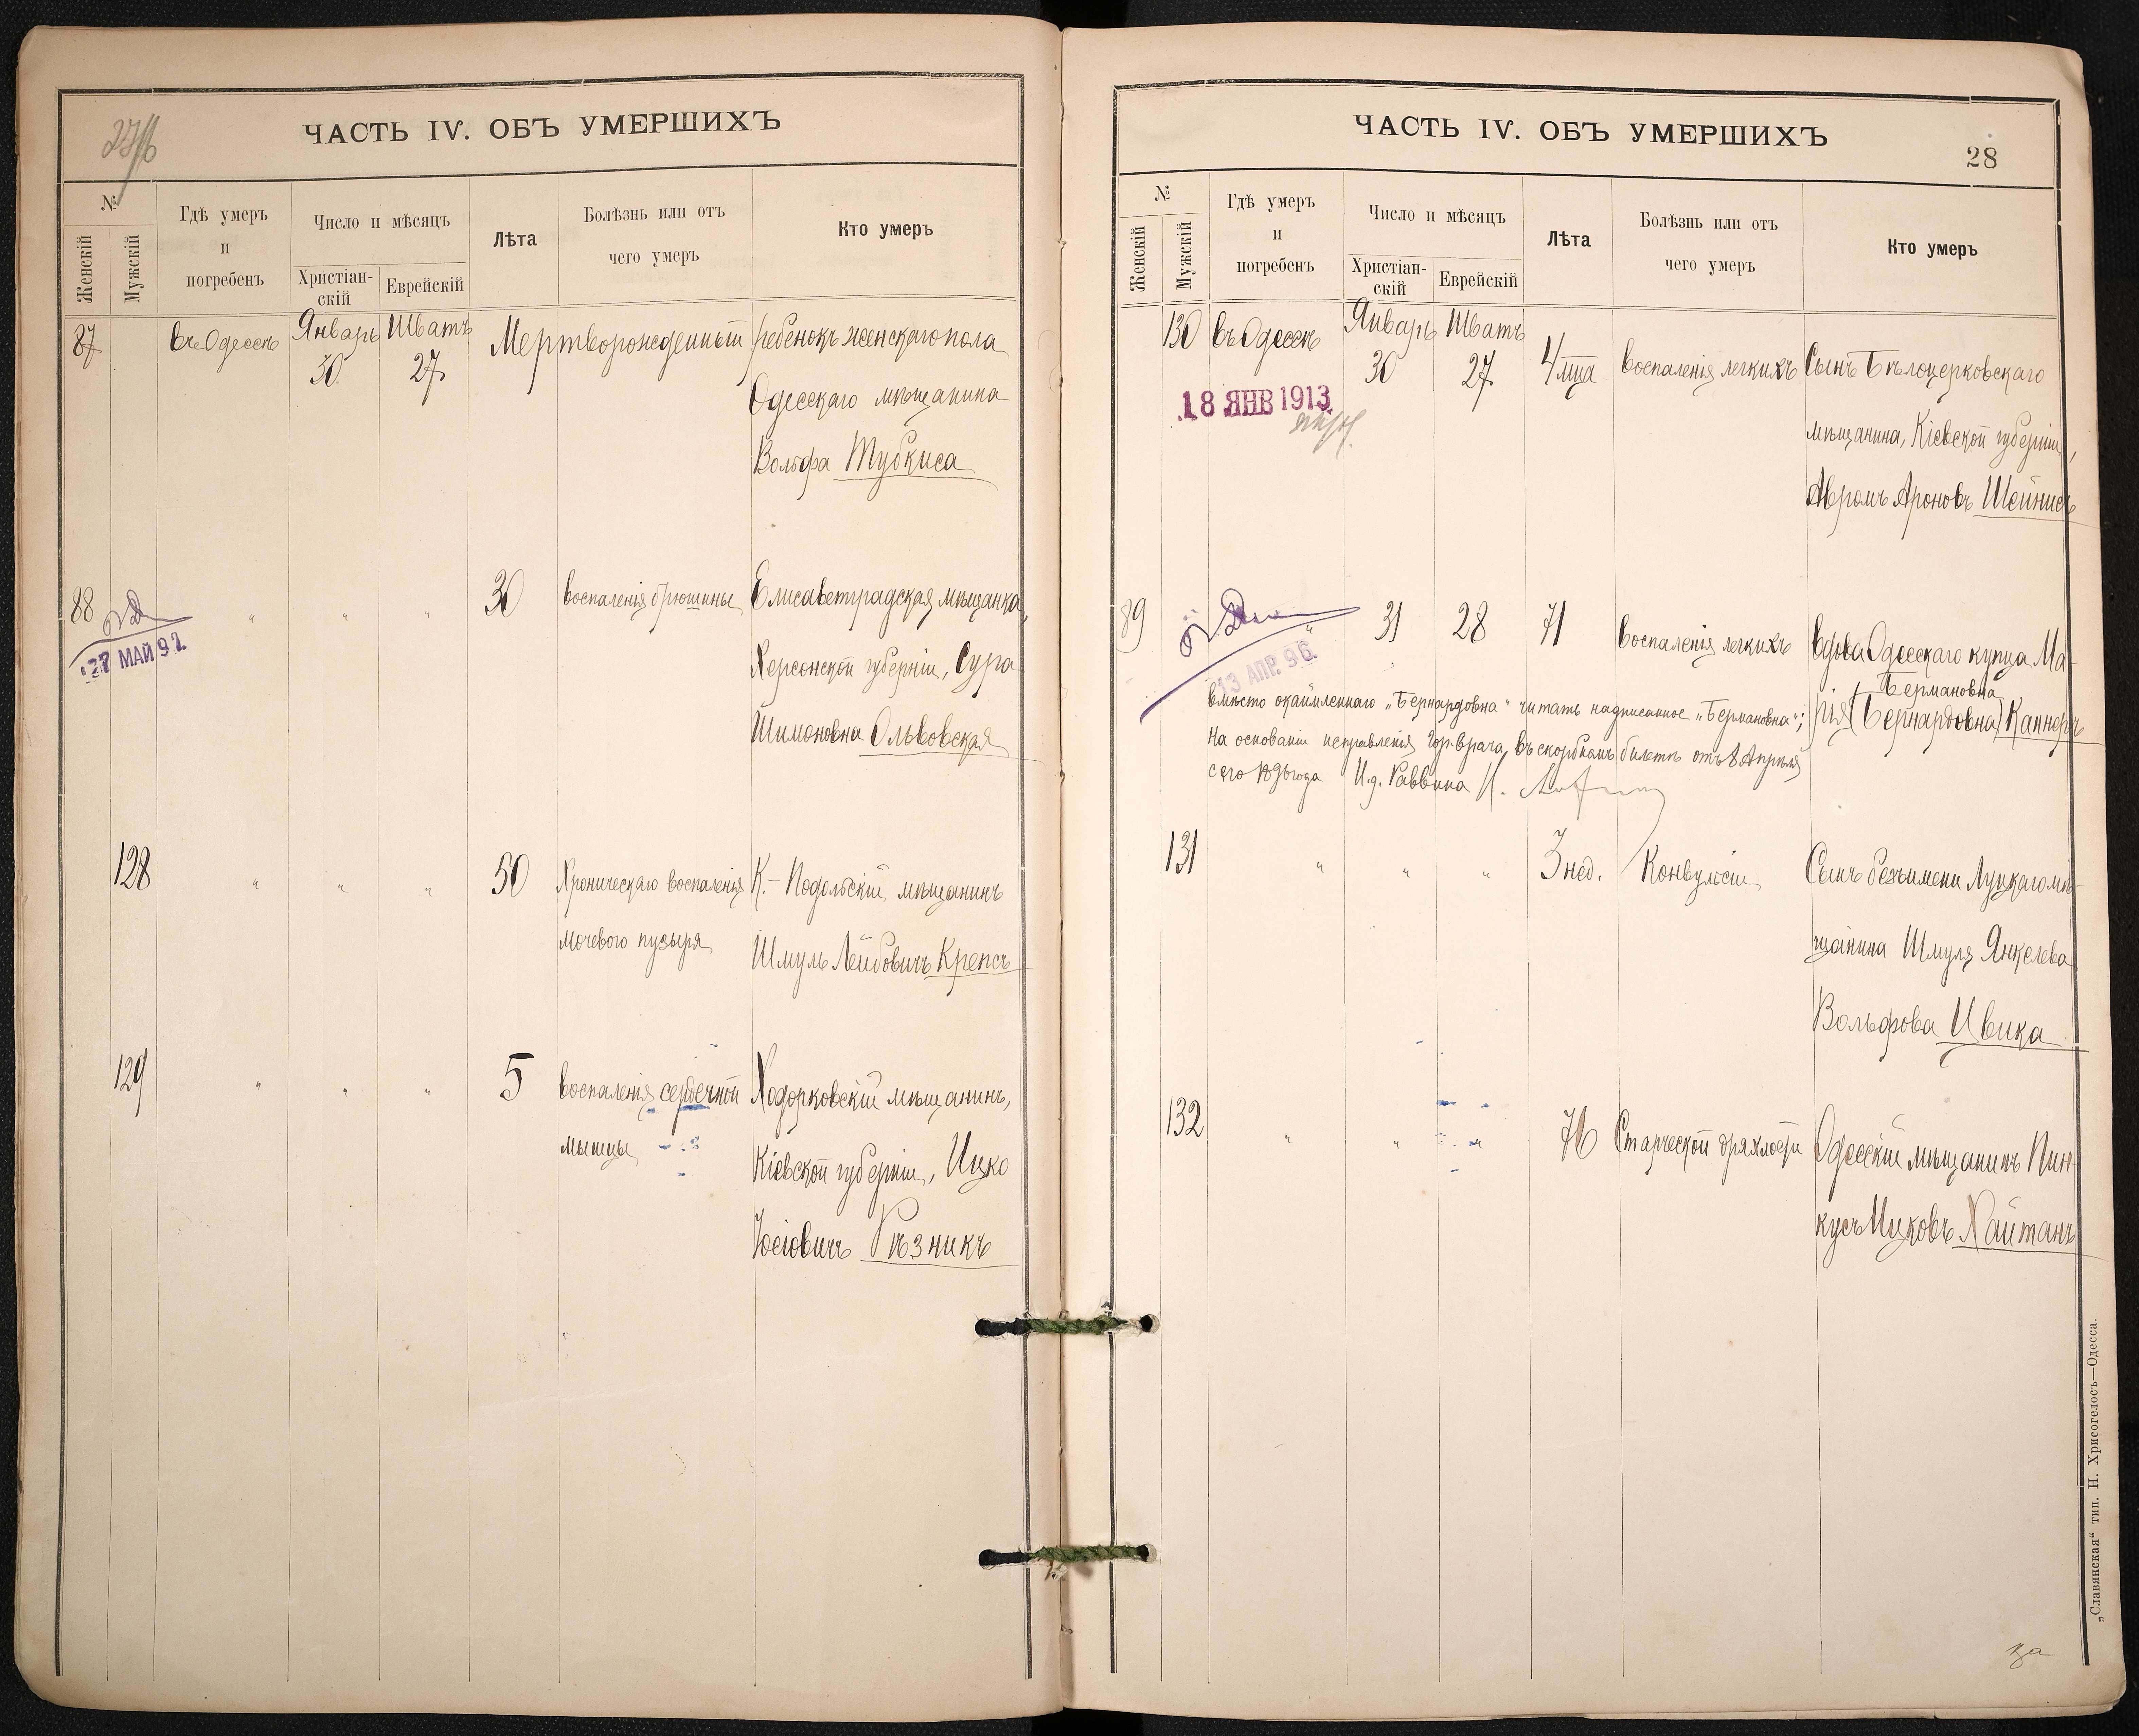 27/б
ЧАСТЬ IV. ОБЪ УМЕРШИХЪ
№
Женскій
Мужскій
Гдѣ умеръ
и
погребенъ
Число и мѣсяцъ
Христіан-
скій
Еврейскій
Лѣта
Болѣзнь или отъ
чего умеръ
Кто умеръ
87 въ Одессѣ Январь Шватъ Мертворожденный ребенокъ женскаго пола
30 27 Одесскаго мѣщанина
Вольфа Тубкиса
88 " " " 30 воспаленія брюшины Елисаветградская мѣщанка,
27 МАЙ 97. Херсонской губерніи, Сура
Шимоновна Ольвовская
128 " " " 50 Хроническаго воспаленія К.-Подольскій мѣщанинъ
мочевого пузыря Шмуль Лейбовичъ Крепсъ
129 " " " 5 воспаленія сердечной Ходорковскій мѣщанинъ,
мышцы Кіевской губерніи, Ицко
Іосіовичъ Рѣзникъ
ЧАСТЬ IV. ОБЪ УМЕРШИХЪ
28
№
Женскій
Мужскій
Гдѣ умеръ
и
погребенъ
Число и мѣсяцъ
Христіан-
скій
Еврейскій
Лѣта
Болѣзнь или отъ
чего умеръ
Кто умеръ
130 въ Одессѣ Январь Шватъ
30 27 4 мца воспаленія легкихъ Сынъ Бѣлоцерковскаго
18 ЯНВ 1913
мѣщанина, Кіевской губерніи,
Авромъ Ароновъ Шейнисъ
89 " 31 28 71 воспаленія легкихъ вдова Одесскаго купца Ма-
13 АПР. 96.
Бермановна
рія (Бернардовна) Каннеръ
вмѣсто окаймленнаго „Бернардовна" читать надписанное „Бермановна";
На основаніи исправленія Гор. врача, въ скорбномъ билетѣ отъ 8 Апрѣля
сего 1896 года И.д. Раввина
131 " " " 3 нед. Конвульсіи Сынъ безъ имени Луцкаго мѣ-
щанина Шмуля Янкелева
Вольфова Цвика
132 " " " 76 Старческой дряхлости Одесскій мѣщанинъ Пин-
кусъ Ицковъ Хайтанъ
„Славянская“ тип. Н. Хрисогелосъ—Одесса.